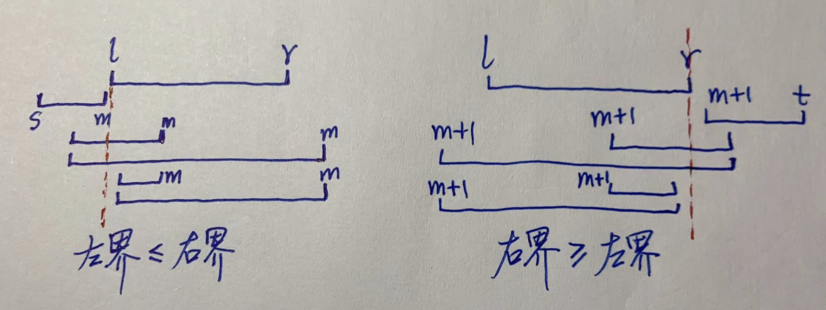 l r
s m m
m
m
m
左界 ≤ 右界
l r
m+1 t
m+1 m+1
m+1 m+1
右界 ≥ 左界